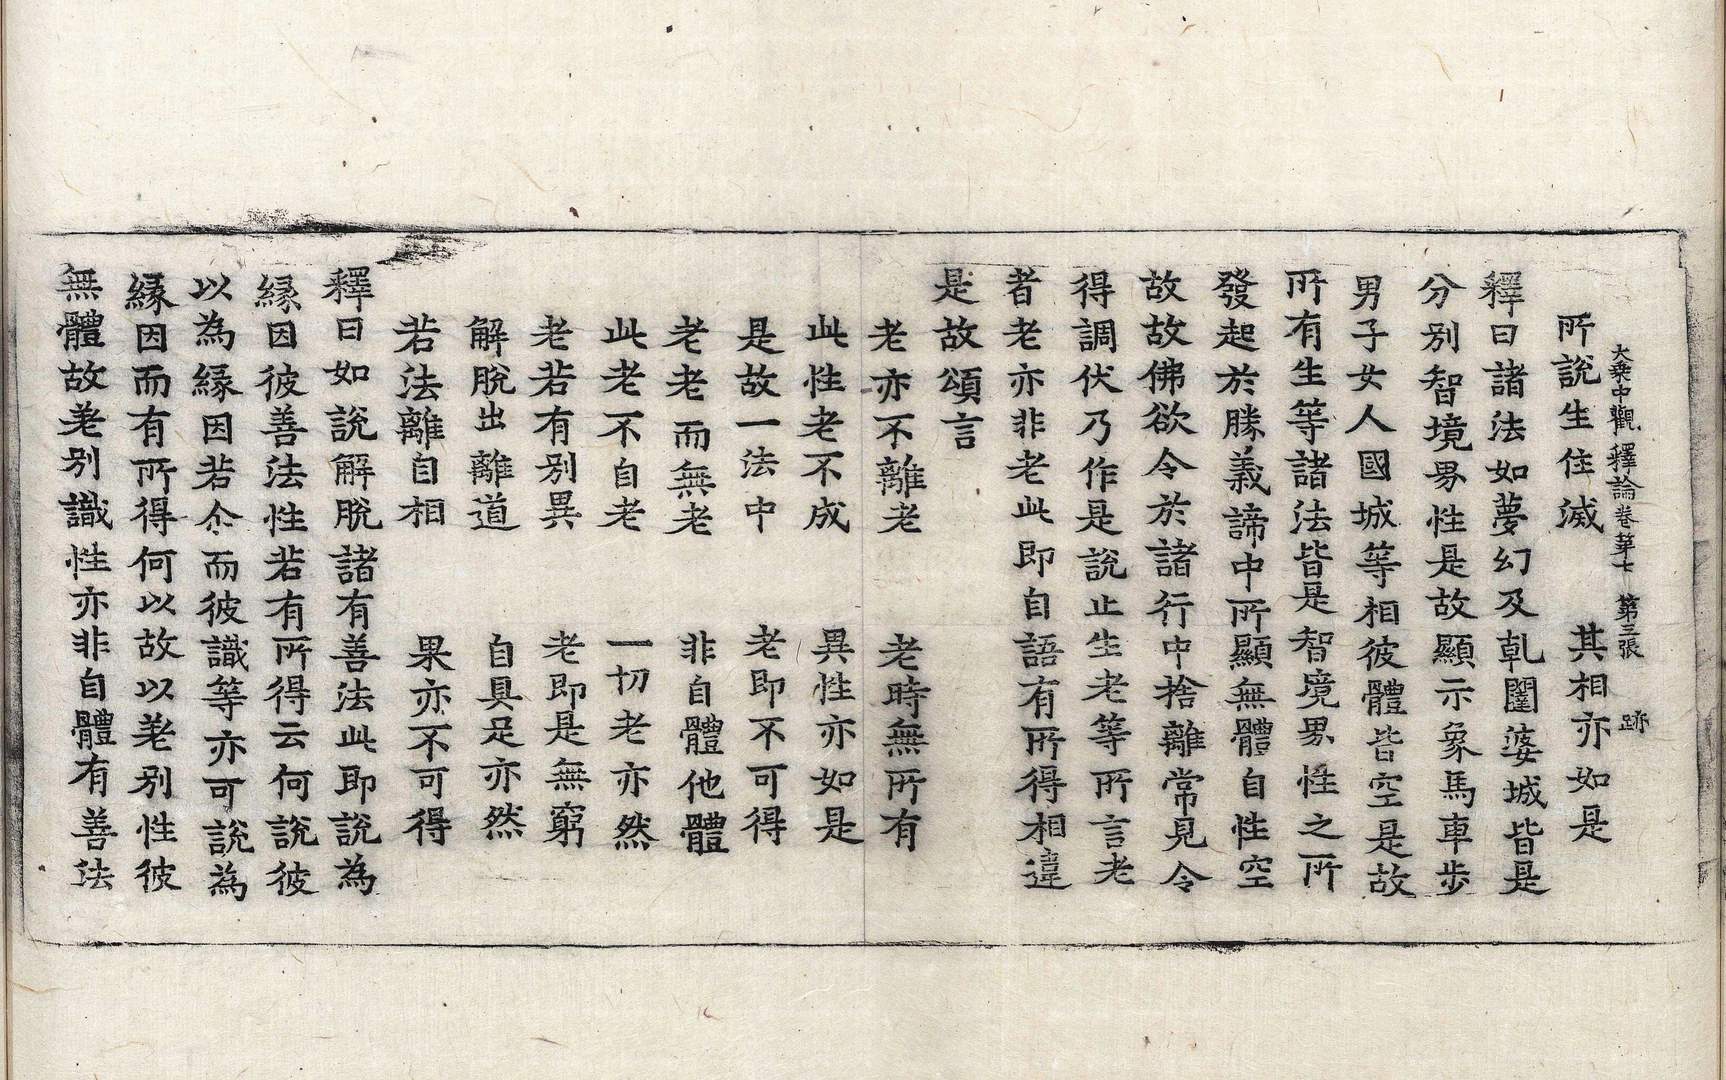 大乗中觀釋論卷第七 第三張 跡
所說生住滅 其相亦如是
釋曰諸法如夢幻及乹闥婆城皆是
分別智境界性是故顯示象馬車步
男子女人國城等相彼體皆空是故
所有生等諸法皆是智境界性之所
發起於勝義諦中所顯無體自性空
故故佛欲令於諸行中捨離常見令
得調伏乃作是說止生老等所言老
者老亦非老此即自語有所得相違
是故頌言
老亦不離老 老時無所有
此性老不成 異性亦如是
是故一法中 老即不可得
老老而無老 非自體他體
此老不自老 一切老亦然
老若有別異 老即是無窮
解脫出離道 自具足亦然
若法離自相 果亦不可得
釋曰如說解脫諸有善法此即說為
緣因彼善法性若有所得云何說彼
以為緣因若尒而彼識等亦可說為
緣因而有所得何以故以差別性彼
無體故差別識性亦非自體有善法